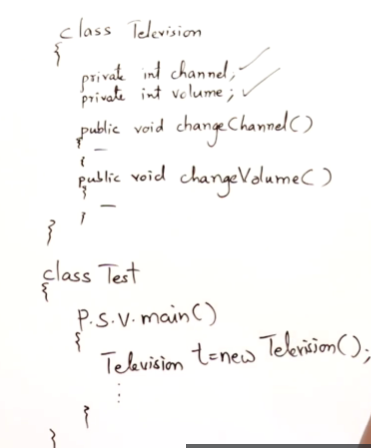 class Television
{
private int channel;
private int volume;
public void changeChannel()
{
—
}
public void changeVolume()
{
—
}
}
class Test
{
P.S.V. main()
{
Television t=new Television();
⋮
}
}